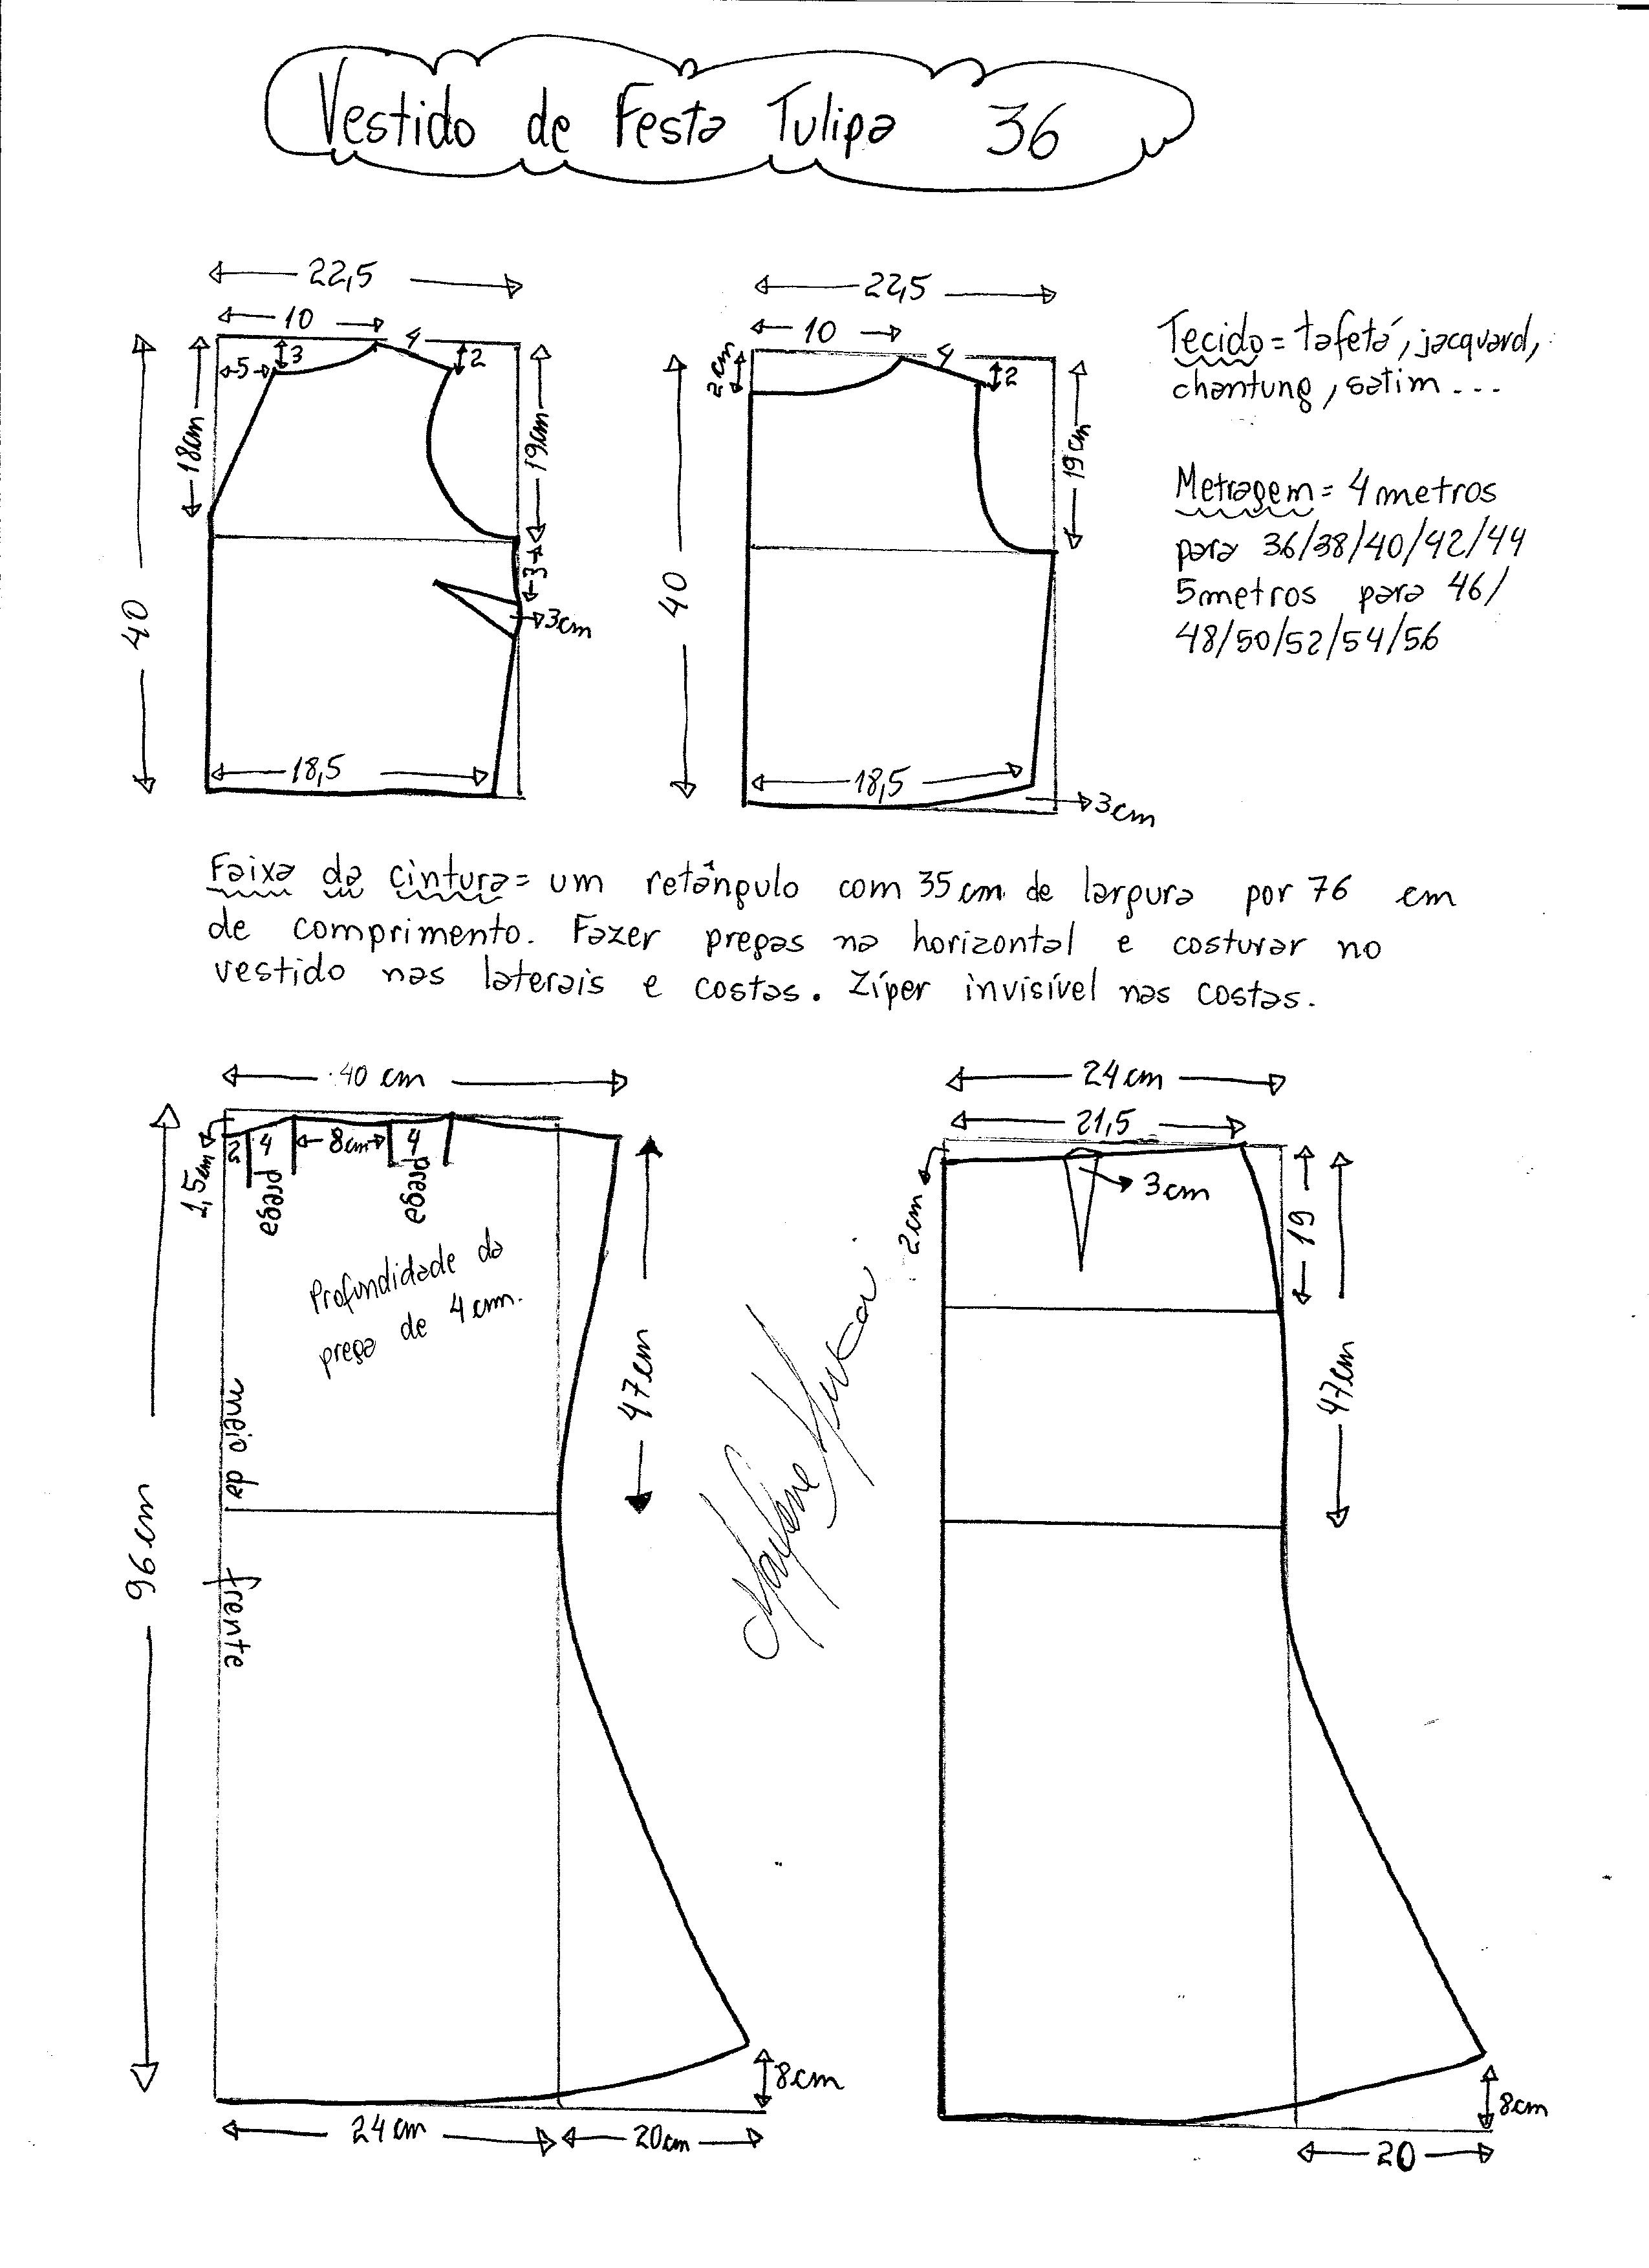 Vestido de Festa Tulipa 36
22,5
10
4
3
5
2
18cm
19cm
3
3cm
40
18,5
22,5
10
4
2cm
2
19cm
40
18,5
3cm
Tecido = tafetá, jacquard,
chantung, satim ...
Metragem = 4 metros
para 36/38/40/42/44
5metros para 46/
48/50/52/54/56
Faixa da cintura = um retângulo com 35 cm de largura por 76 cm
de comprimento. Fazer pregas na horizontal e costurar no
vestido nas laterais e costas. Zíper invisível nas costas.
40 cm
2
4
8cm
4
1,5cm
prega
prega
Profundidade da
prega de 4 cm.
47cm
meio da frente
96cm
8cm
24cm
20cm
24cm
21,5
3cm
2cm
19
47cm
8cm
20